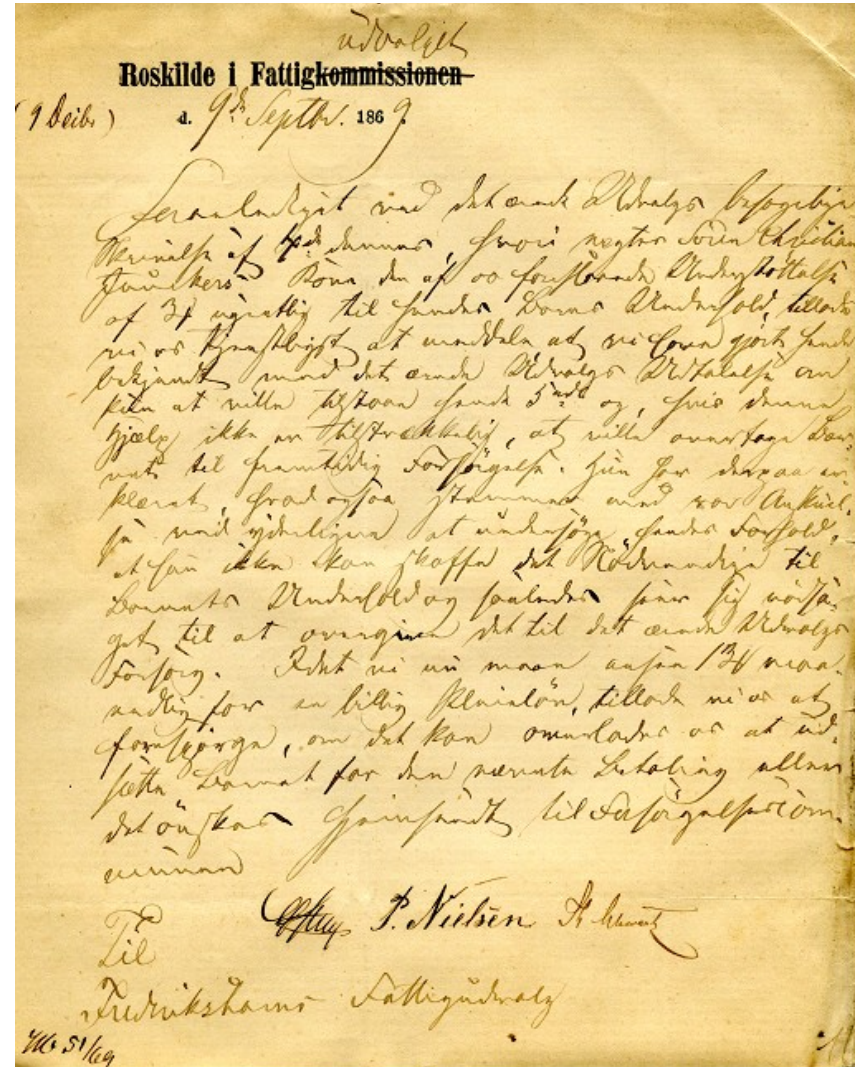 udvalget
Roskilde i Fattigkommissionen
d. 9de Septbr. 1869.
Foranlediget ved det ærede Udvalgs behagelige
Skrivelse af 4de dennes, hvori nægtes Sören Christian
Junckers Kone den af os foreslaaede Understöttelse
af 3 ugentlig til hendes Barns Underhold, tillade
vi os tjenstligst at meddele at vi have gjort hende
bekjendt med det ærede Udvalgs Udtalelse om
kun at ville tilstaae hende 5 og, hvis denne
Hjælp ikke er tilstrækkelig, at ville overtage Bar-
net til fremtidig Forsörgelse. Hun har derpaa er-
klæret, hvad ogsaa stemmer med vor Anskuel-
se ved yderligere at undersöge hendes Forhold,
at hun ikke kan skaffe det Nödvendige til
Barnets Underhold og saaledes seer sig nödsa-
get til at overgive det til det ærede Udvalgs
Forsörg. Idet vi nu maae ansee maa-
nedlig for en billig Pleielön, tillade vi os at
forespörge, om det kan overlades os at ud-
sætte Barnet for den nævnte Betaling eller
det önskes hjemsendt til Forsörgelsescom-
munen
P. Nielsen
Til
Fredrikshavns Fattigudvalg
51/69